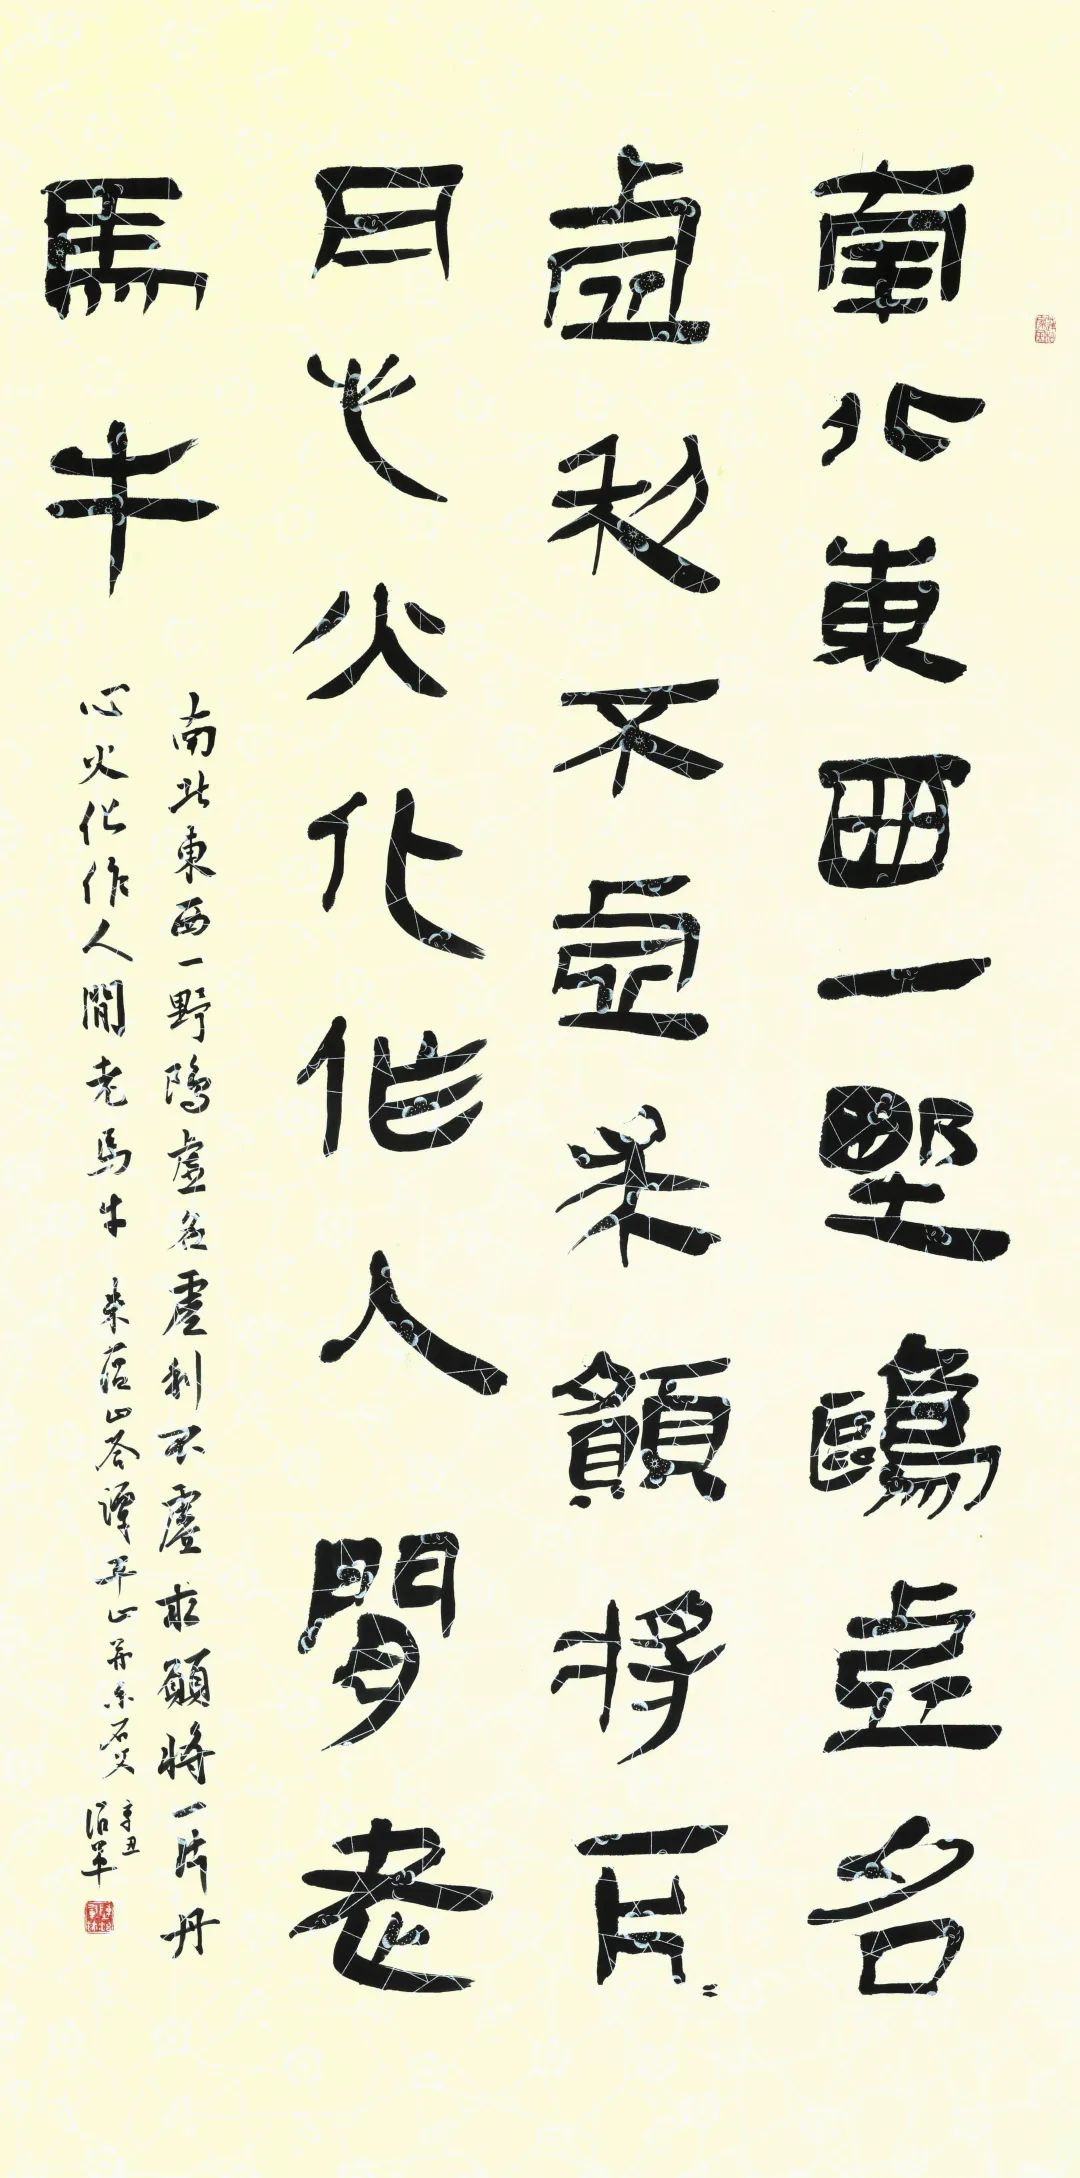 南北東西一野鷗虛名
虛利不虛求願將一片
丹心火化作人間老
馬牛
南北東西一野鷗虛名虛利不虛求願將一片丹
心火化作人間老馬牛 朱蘊山答譚平山并示
辛丑